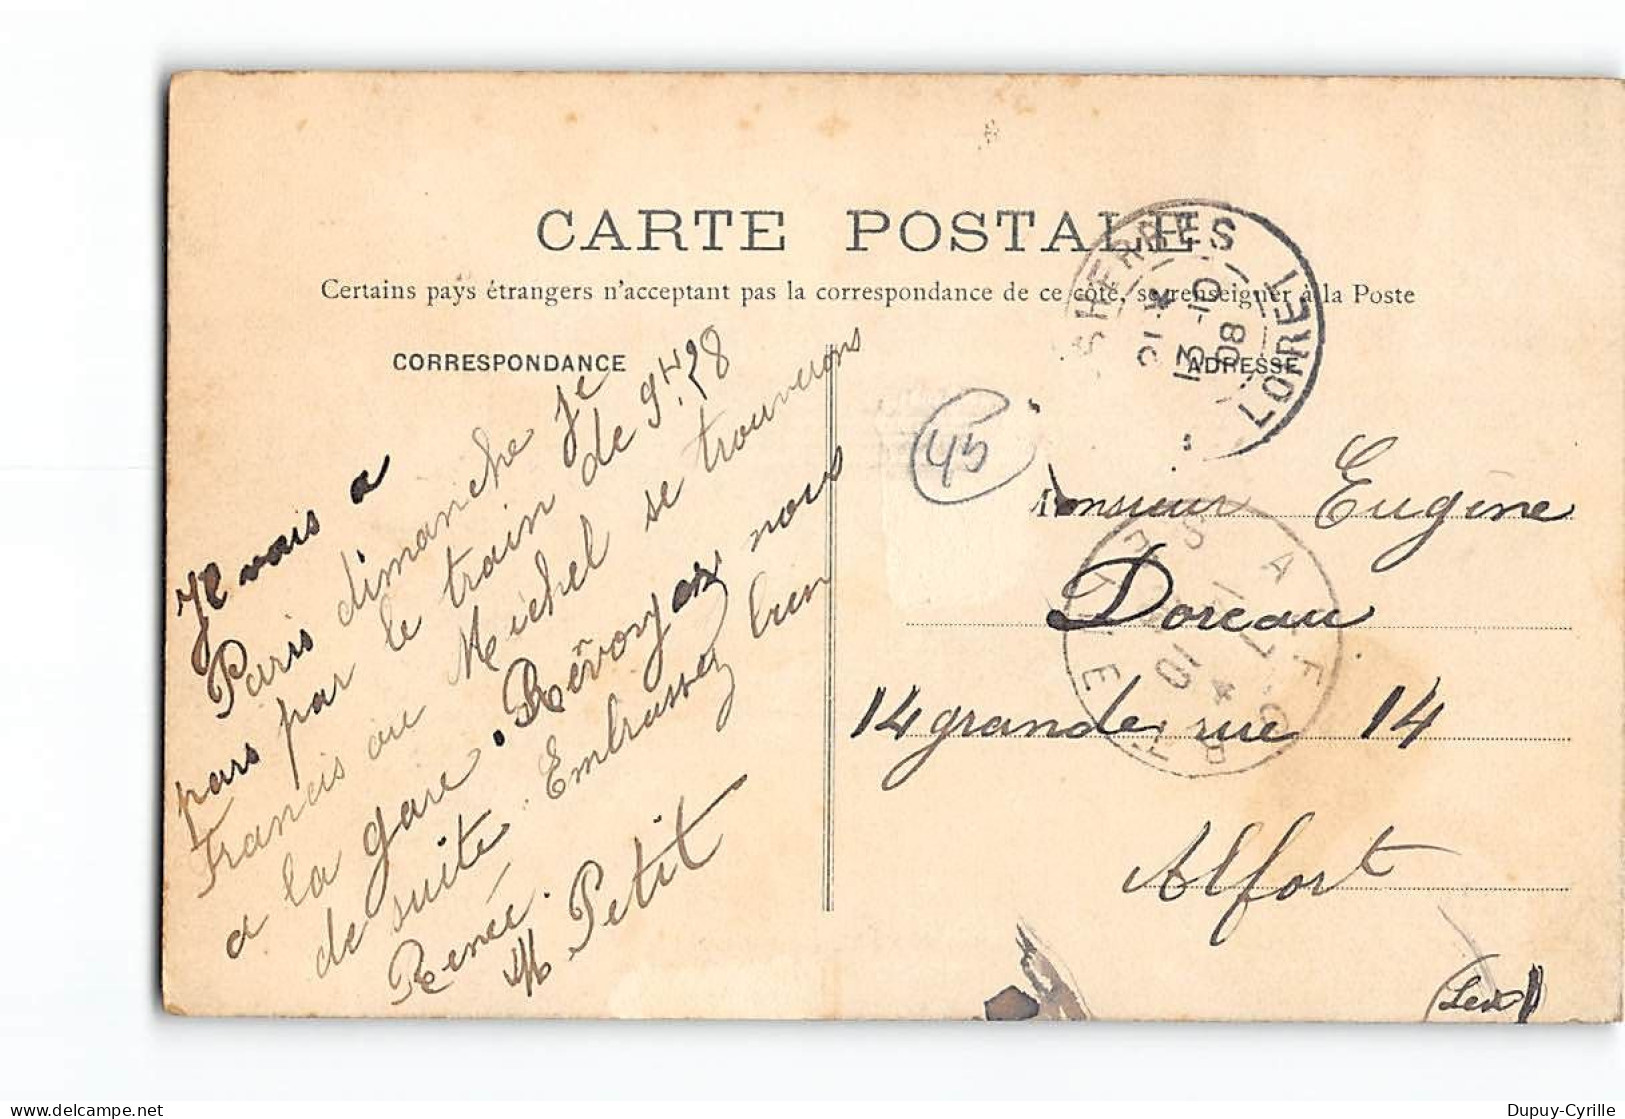 CARTE POSTALE
Certains pays étrangers n'acceptant pas la correspondance de ce côté, se renseigner à la Poste
CORRESPONDANCE
ADRESSE
SHERRES
LOIRET
21
13-10
08
45
Je vais a
Paris dimanche je
pars par le train de 9H28
Francis ou Michel se trouverons
a la gare. Rêvoyez nous
de suite. Embrassez bien
Renée.
M Petit
Monsieur Eugène
Doreau
14 grande rue 14
Alfort
MAISONS ALFORT
Dupuy-Cyrille